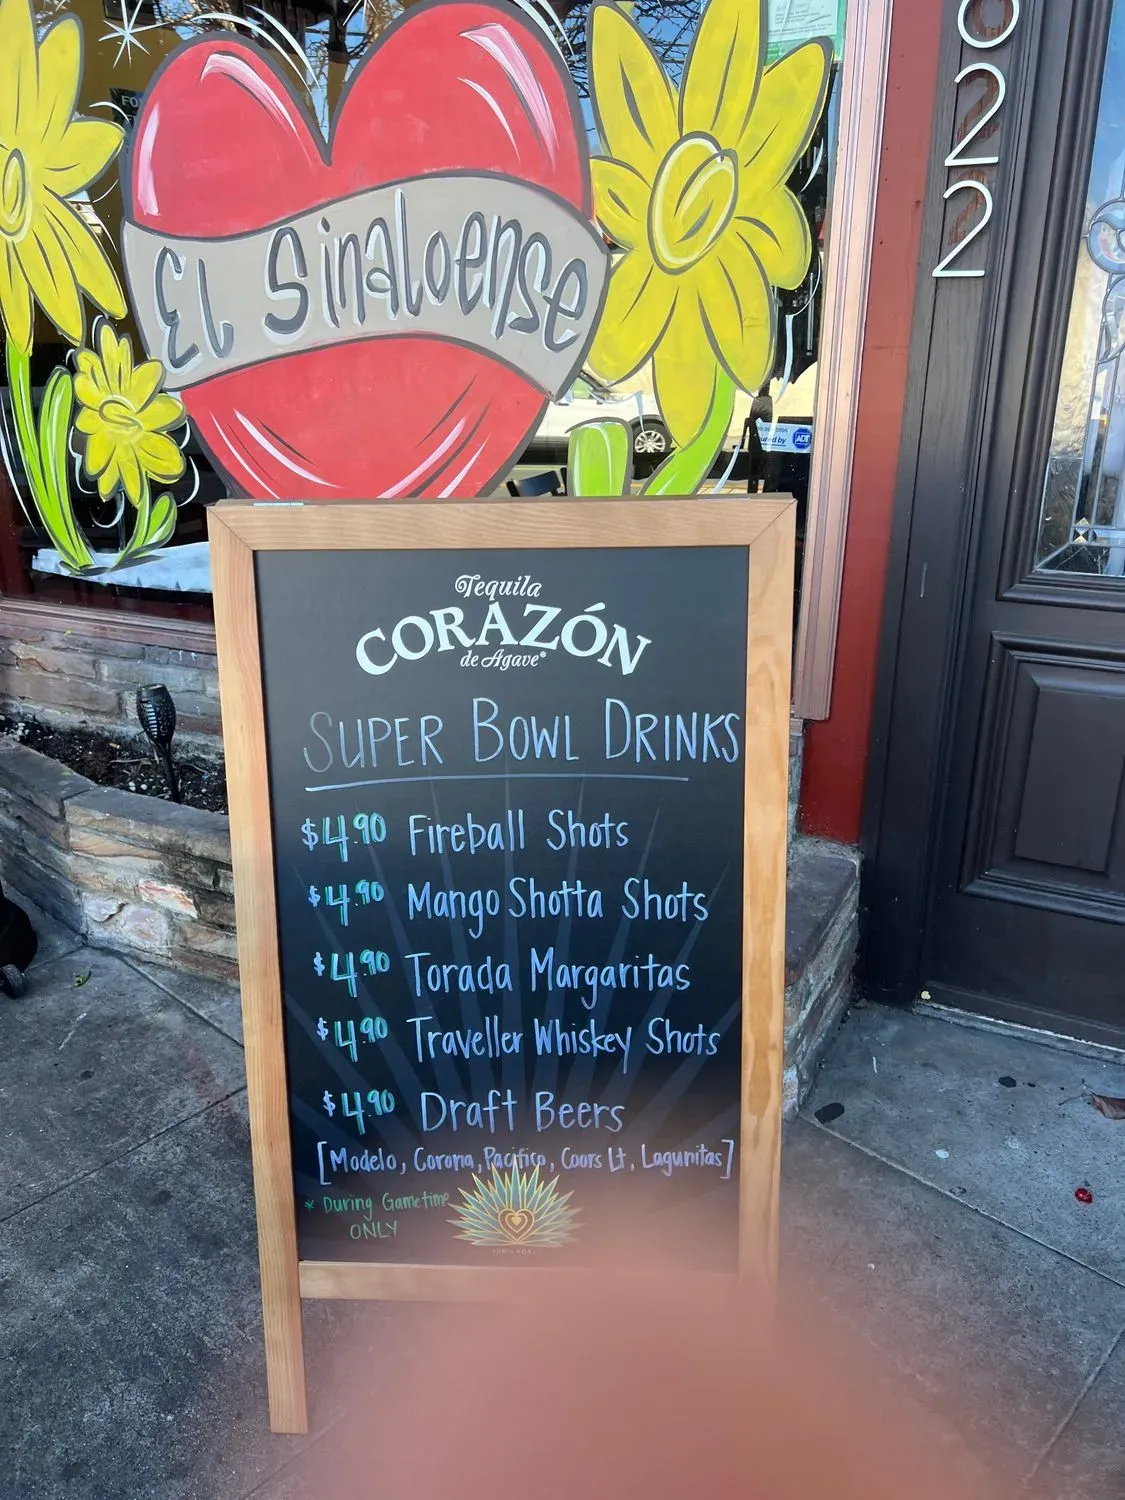 El Sinaloense
022
ADT
Tequila
CORAZÓN
de Agave®
SUPER BOWL DRINKS
$4.90 Fireball Shots
$4.90 Mango Shotta Shots
$4.90 Torada Margaritas
$4.90 Traveller Whiskey Shots
$4.90 Draft Beers
[Modelo, Corona, Pacifico, Coors Lt, Lagunitas]
* During Gametime
ONLY